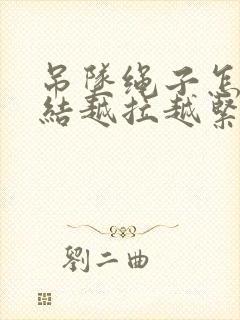 吊墜绳子怎
結越拉越緊
劉二曲